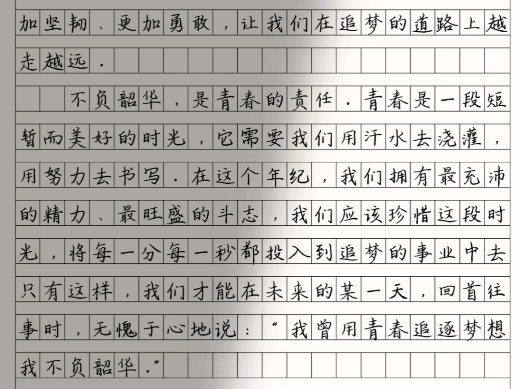 加坚韧、更加勇敢，让我们在追梦的道路上越
走越远．
不负韶华，是青春的责任．青春是一段短
暂而美好的时光，它需要我们用汗水去浇灌，
用努力去书写．在这个年纪，我们拥有最充沛
的精力、最旺盛的斗志，我们应该珍惜这段时
光，将每一分每一秒都投入到追梦的事业中去
只有这样，我们才能在未来的某一天，回首往
事时，无愧于心地说：“我曾用青春追逐梦想
我不负韶华．”